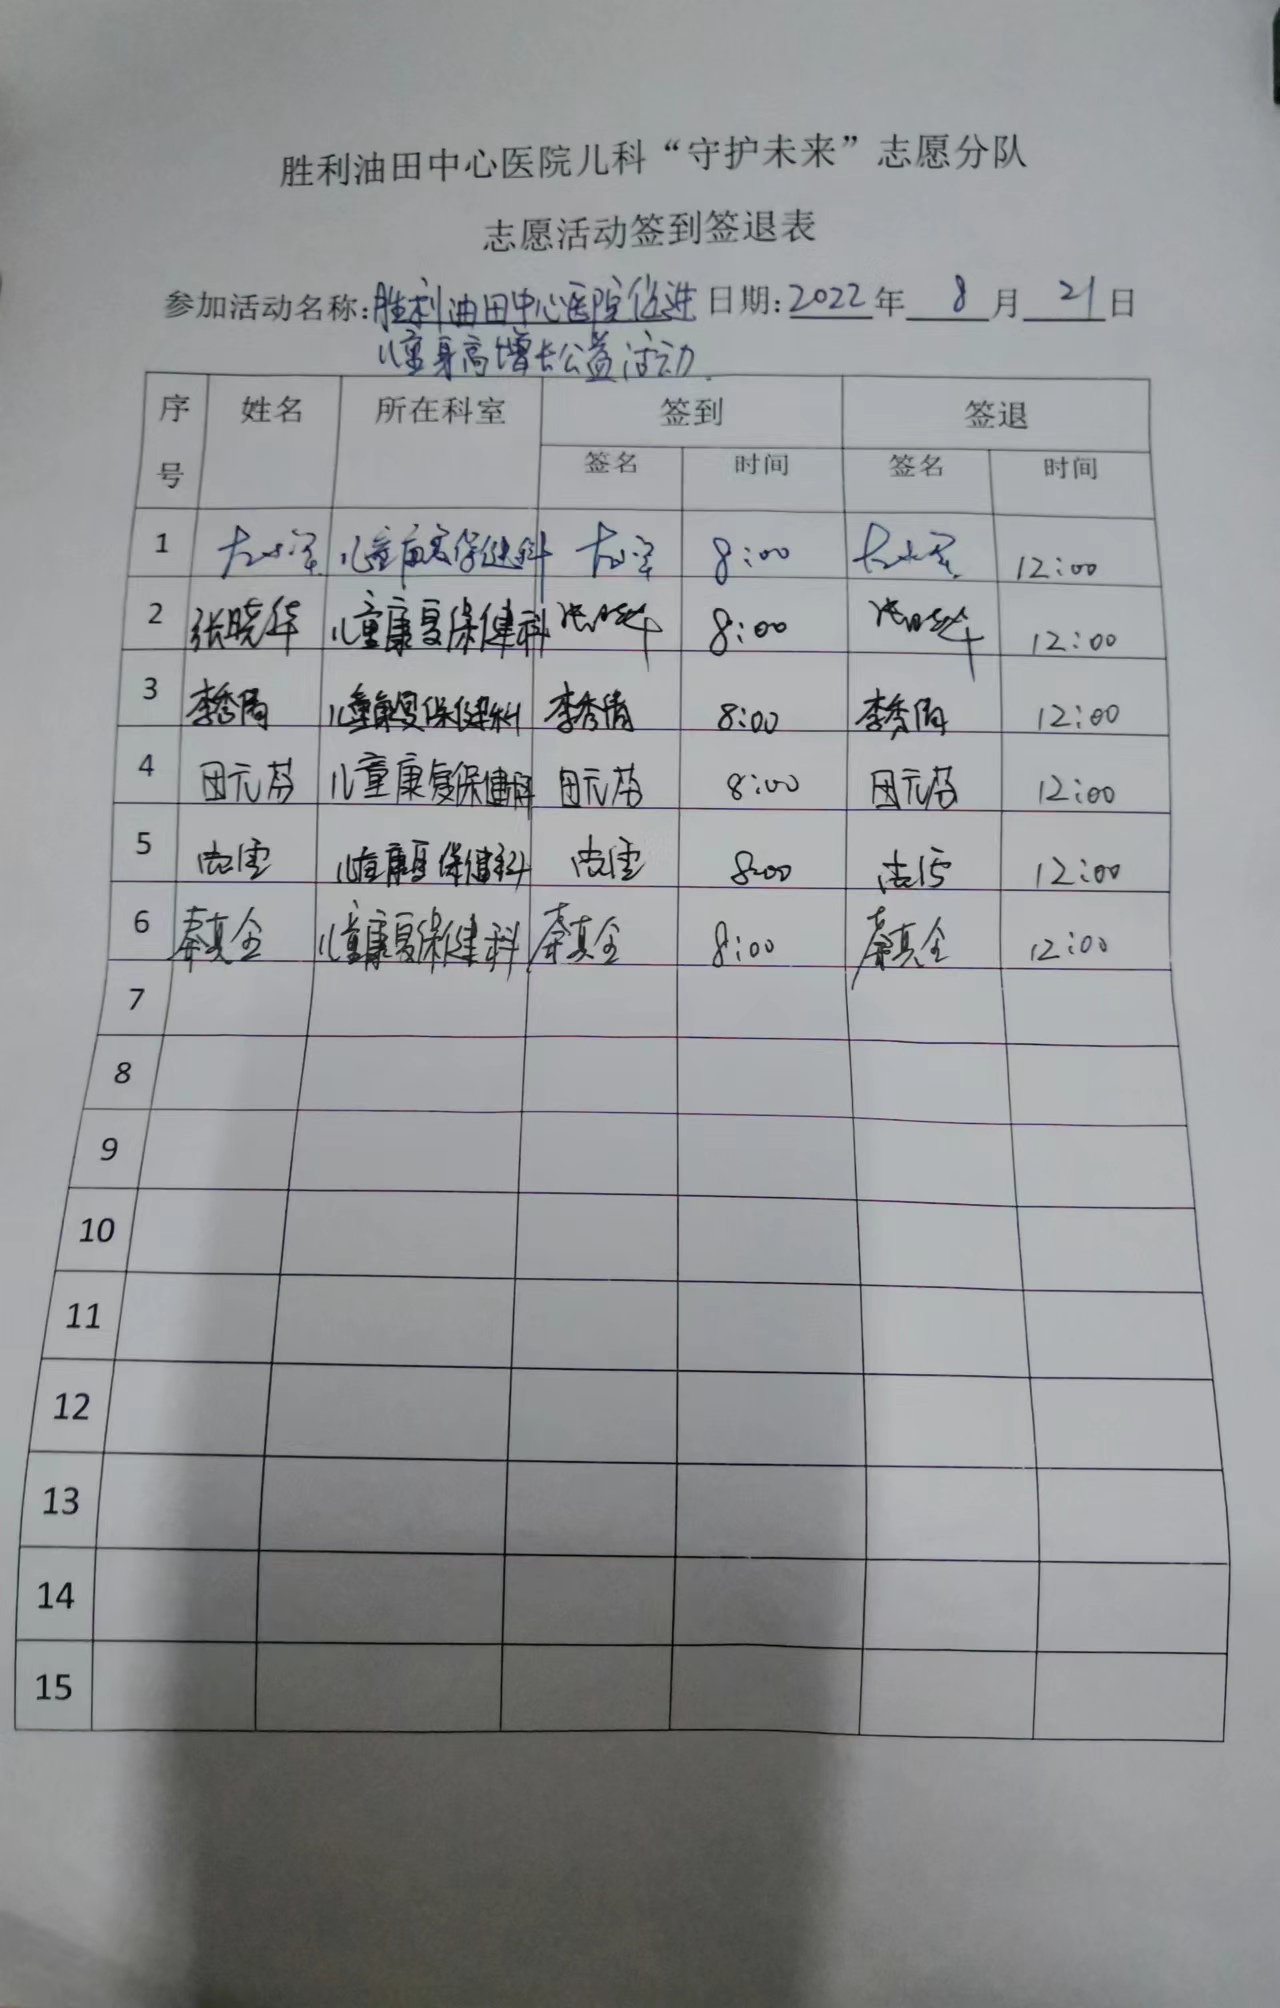 胜利油田中心医院儿科“守护未来”志愿分队
志愿活动签到签退表
参加活动名称:胜利油田中心医院促进 日期:2022年 8 月 21 日
儿童身高增长公益活动
序号 姓名 所在科室 签到 签退
签名 时间 签名 时间
1 儿童康复保健科 8:00 12:00
2 张晓华 儿童康复保健科 张晓华 8:00 张晓华 12:00
3 李秀倩 儿童康复保健科 李秀倩 8:00 李秀倩 12:00
4 田元芬 儿童康复保健科 田元芬 8:00 田元芬 12:00
5 儿童康复保健科 8:00 12:00
6 秦真全 儿童康复保健科 秦真全 8:00 秦真全 12:00
7
8
9
10
11
12
13
14
15